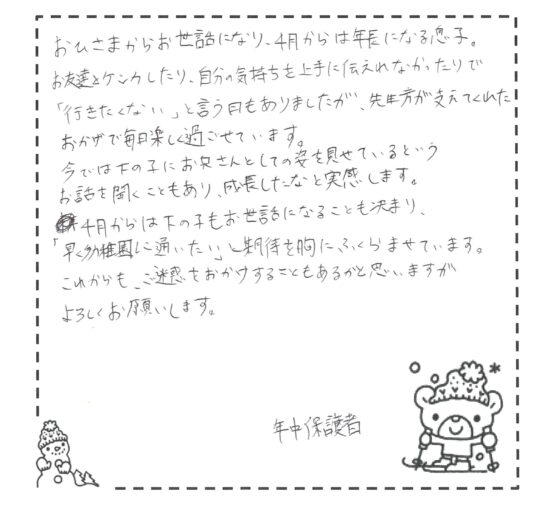 おひさまからお世話になり、4月からは年長になる息子。
お友達とケンカしたり、自分の気持ちを上手に伝えれなかったりで
「行きたくない」と言う日もありましたが、先生方が支えてくれた
おかげで毎日楽しく過ごせています。
今では下の子にお兄さんとしての姿を見せているという
お話を聞くこともあり、成長したなと実感します。
4月からは下の子もお世話になることも決まり、
「早く幼稚園に通いたい」と期待を胸にふくらませています。
これからも、ご迷惑をおかけすることもあるかと思いますが
よろしくお願いします。
年中保護者